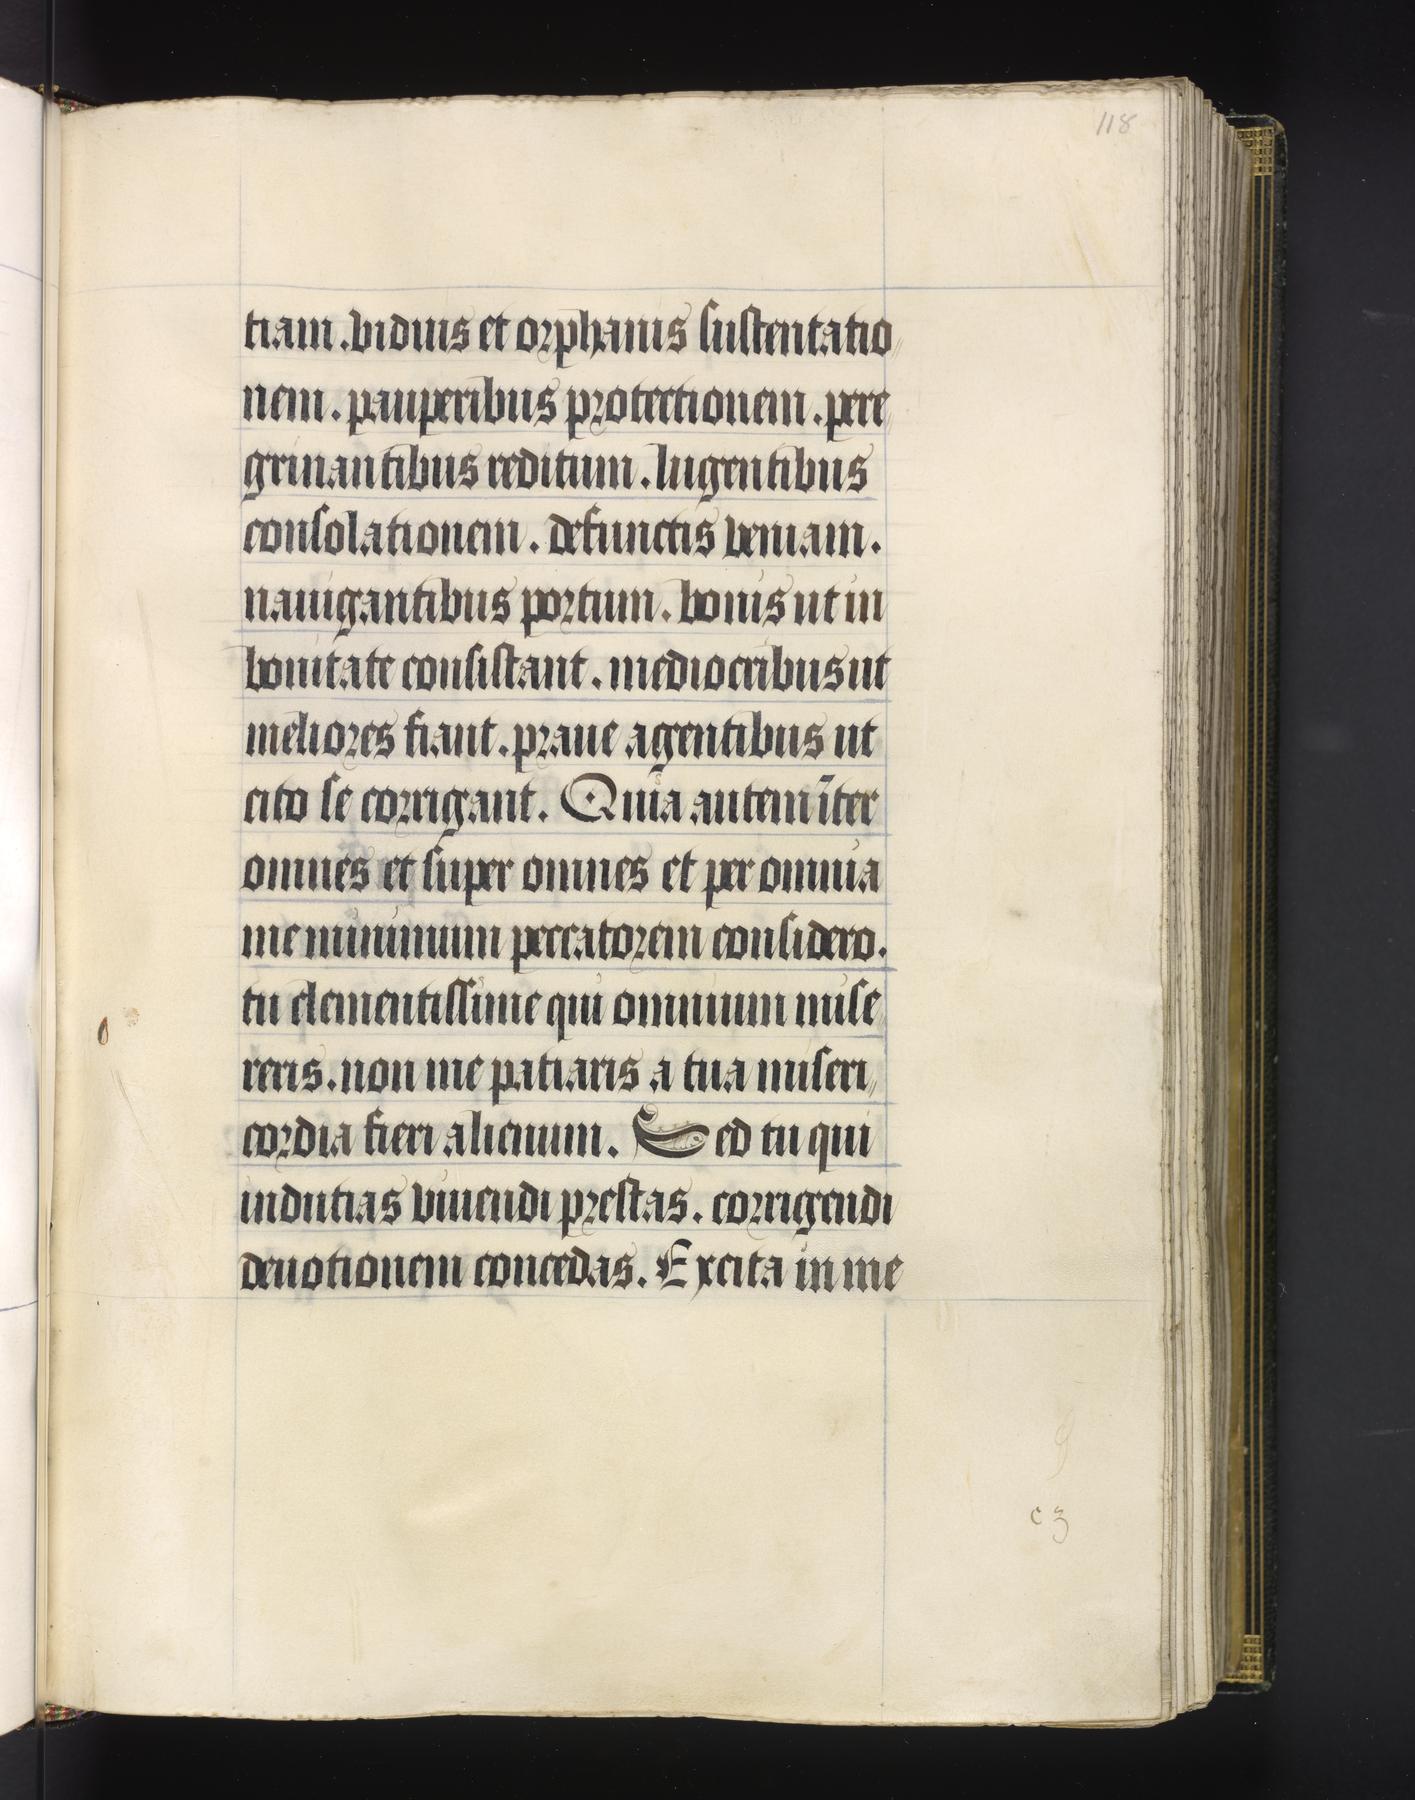 118
tiam. viduis et orphanis sustentatio
nem. pauperibus protectionem. pere
grinantibus reditum. lugentibus
consolationem. defunctis veniam.
nauigantibus portum. bonis ut in
bonitate consistant. mediocribus ut
meliores fiant. praue agentibus ut
cito se corrigant. Quia autem īter
omnes et super omnes et per omnia
me minimum peccatorem considero.
tu clementissime qui omnium mise
reris. non me patiaris a tua miseri
cordia fieri alienum. Sed tu qui
indutias viuendi prestas. corrigendi
deuotionem concedas. Excita in me
c 3